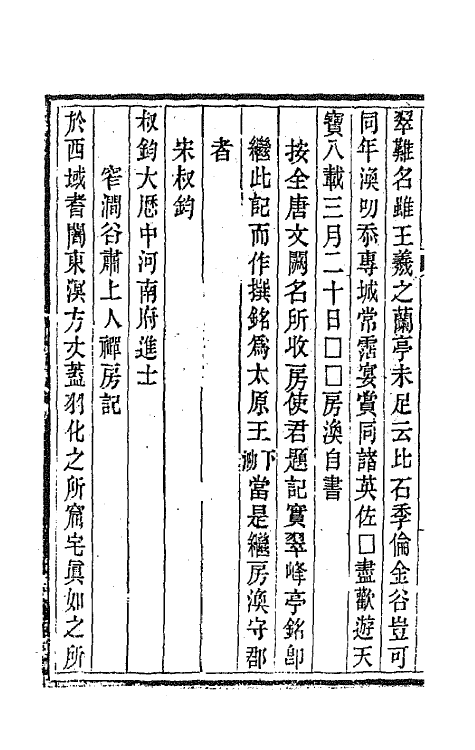 翠難名雖王羲之蘭亭未足云比石季倫金谷豈可
同年渙叨忝專城常霑宴賞同諸英佐□盡歡遊天
寶八載三月二十日□□房渙自書
按全唐文闕名所收房使君題記實翠峰亭銘卽
繼此記而作撰銘爲太原王下泐當是繼房渙守郡
者
宋叔鈞
叔鈞大厯中河南府進士
窄澗谷肅上人禪房記
於西域耆闍東溟方丈蓋羽化之所窟宅眞如之所